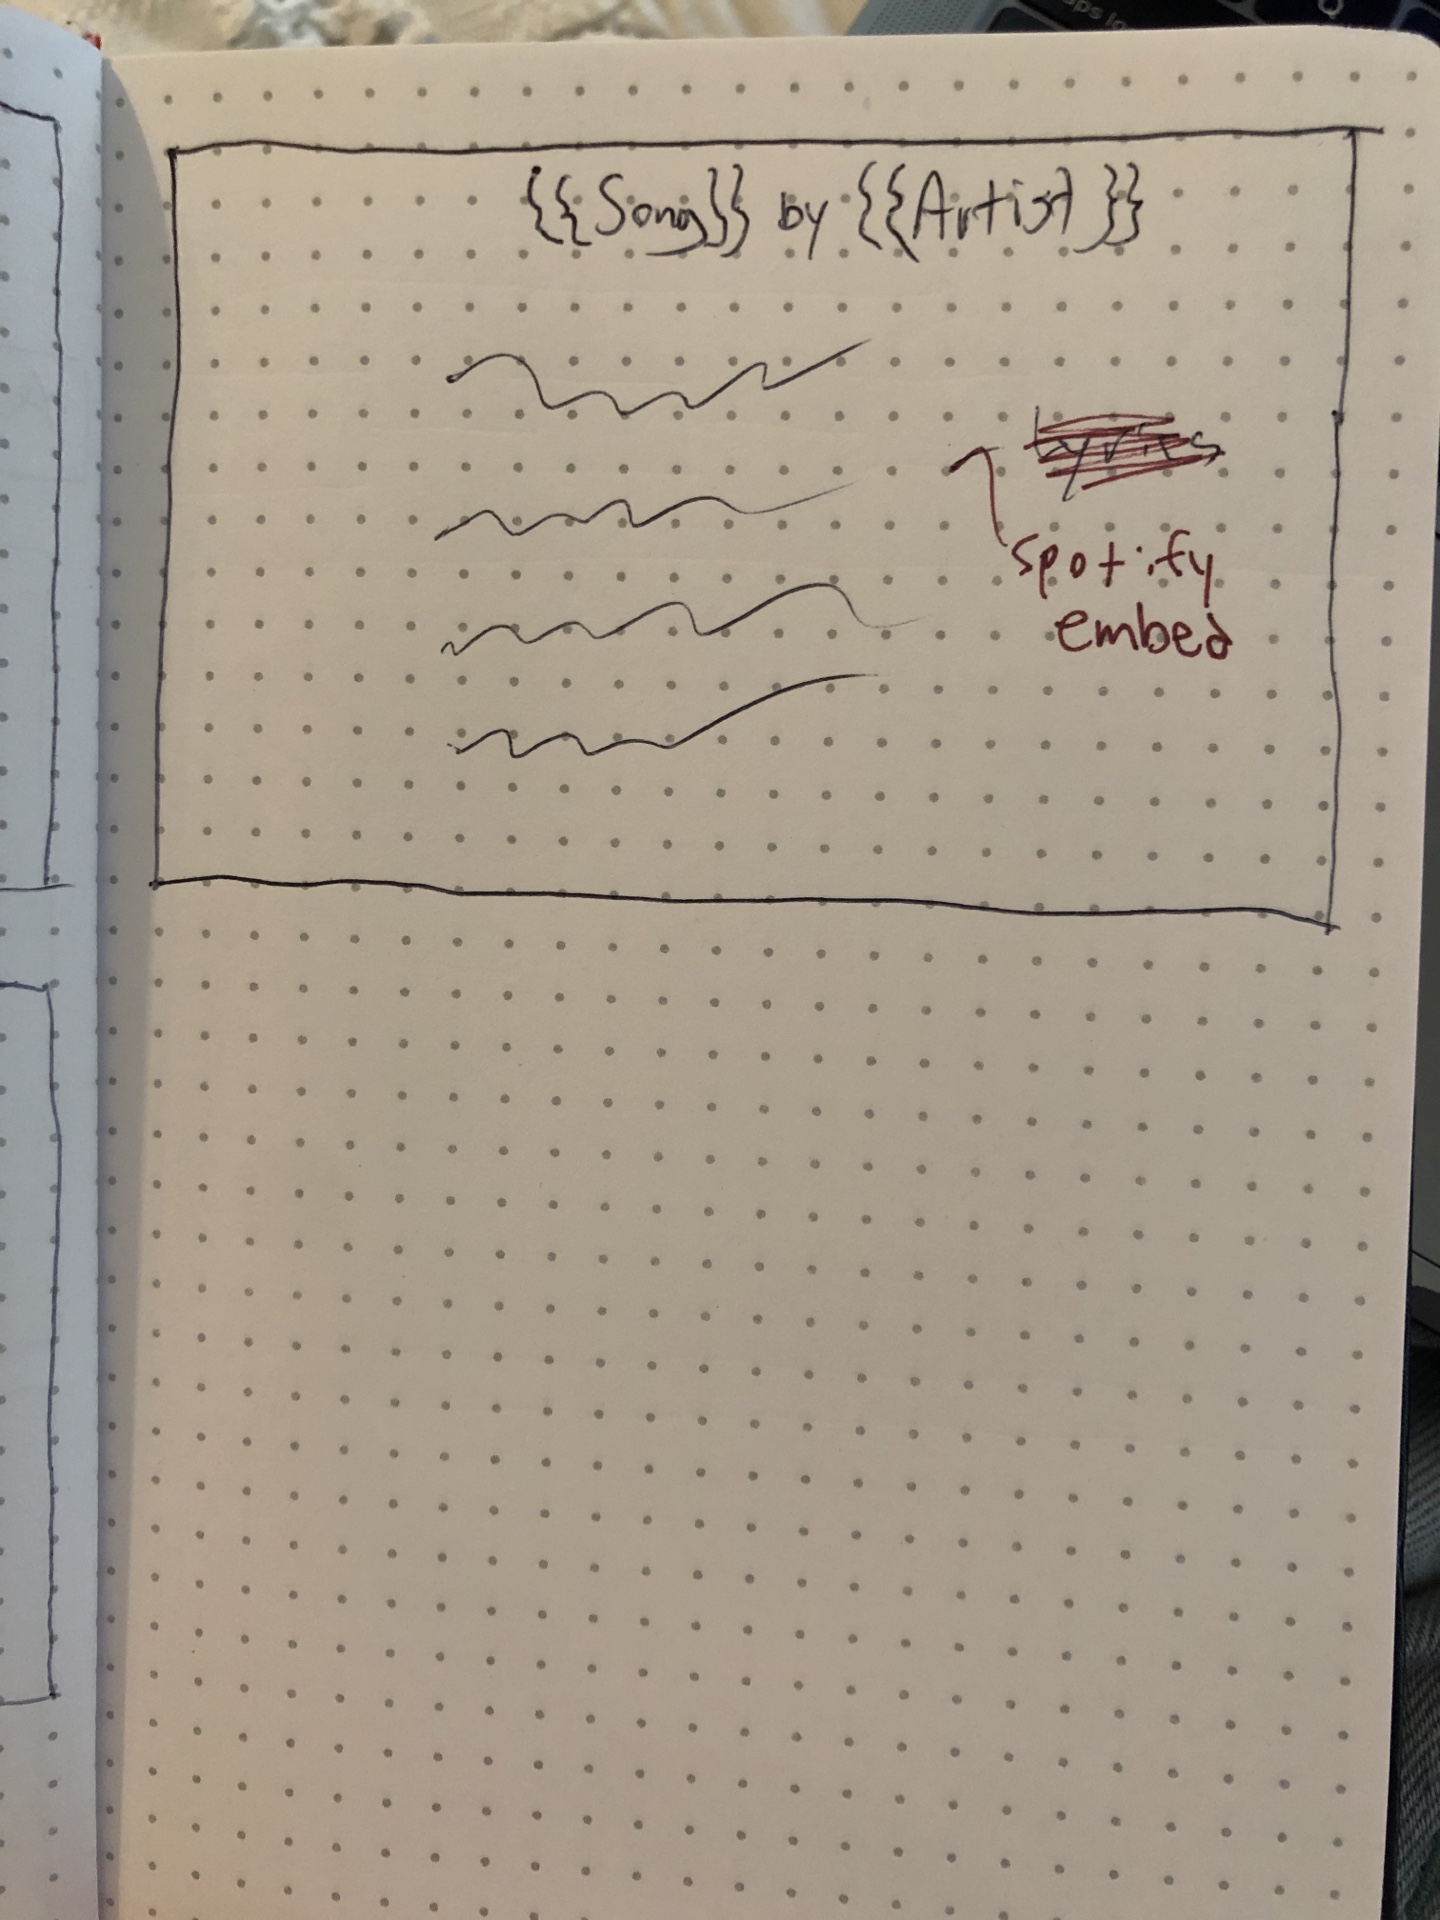 {{Song}} by {{Artist}}
Lyrics
Spotify
embed